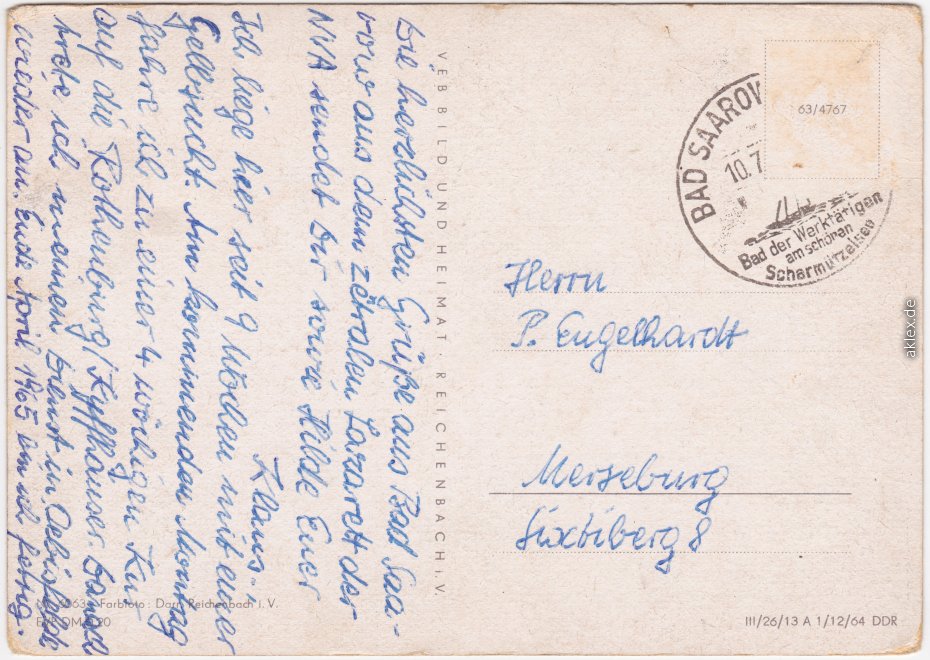 Die herzlichsten Grüße aus Bad Saa-
row aus dem zetralen Lazarett der
NVA sendet Dir sowie Hilde Euer
Klaus.-
Ich liege hier seit 9 Wochen mit einer
Gelbsucht. Am kommenden Montag
fahre ich zu einer 4 wöchigen Kur
auf die Rothenburg/Kyffhäuser. Danach
trete ich meinen Dienst in Oebisfelde
wieder an. Ende April 1965 bin ich fertig.
VEB BILD UND HEIMAT · REICHENBACH i. V.
Farbfoto: Darr, Reichenbach i. V.
63/4767
BAD SAAROW
10.7
Bad der Werktätigen
am schönen
Scharmützelsee
Herrn
P. Engelhardt
Merseburg
Sixtiberg 8
III/26/13 A 1/12/64 DDR
aklex.de